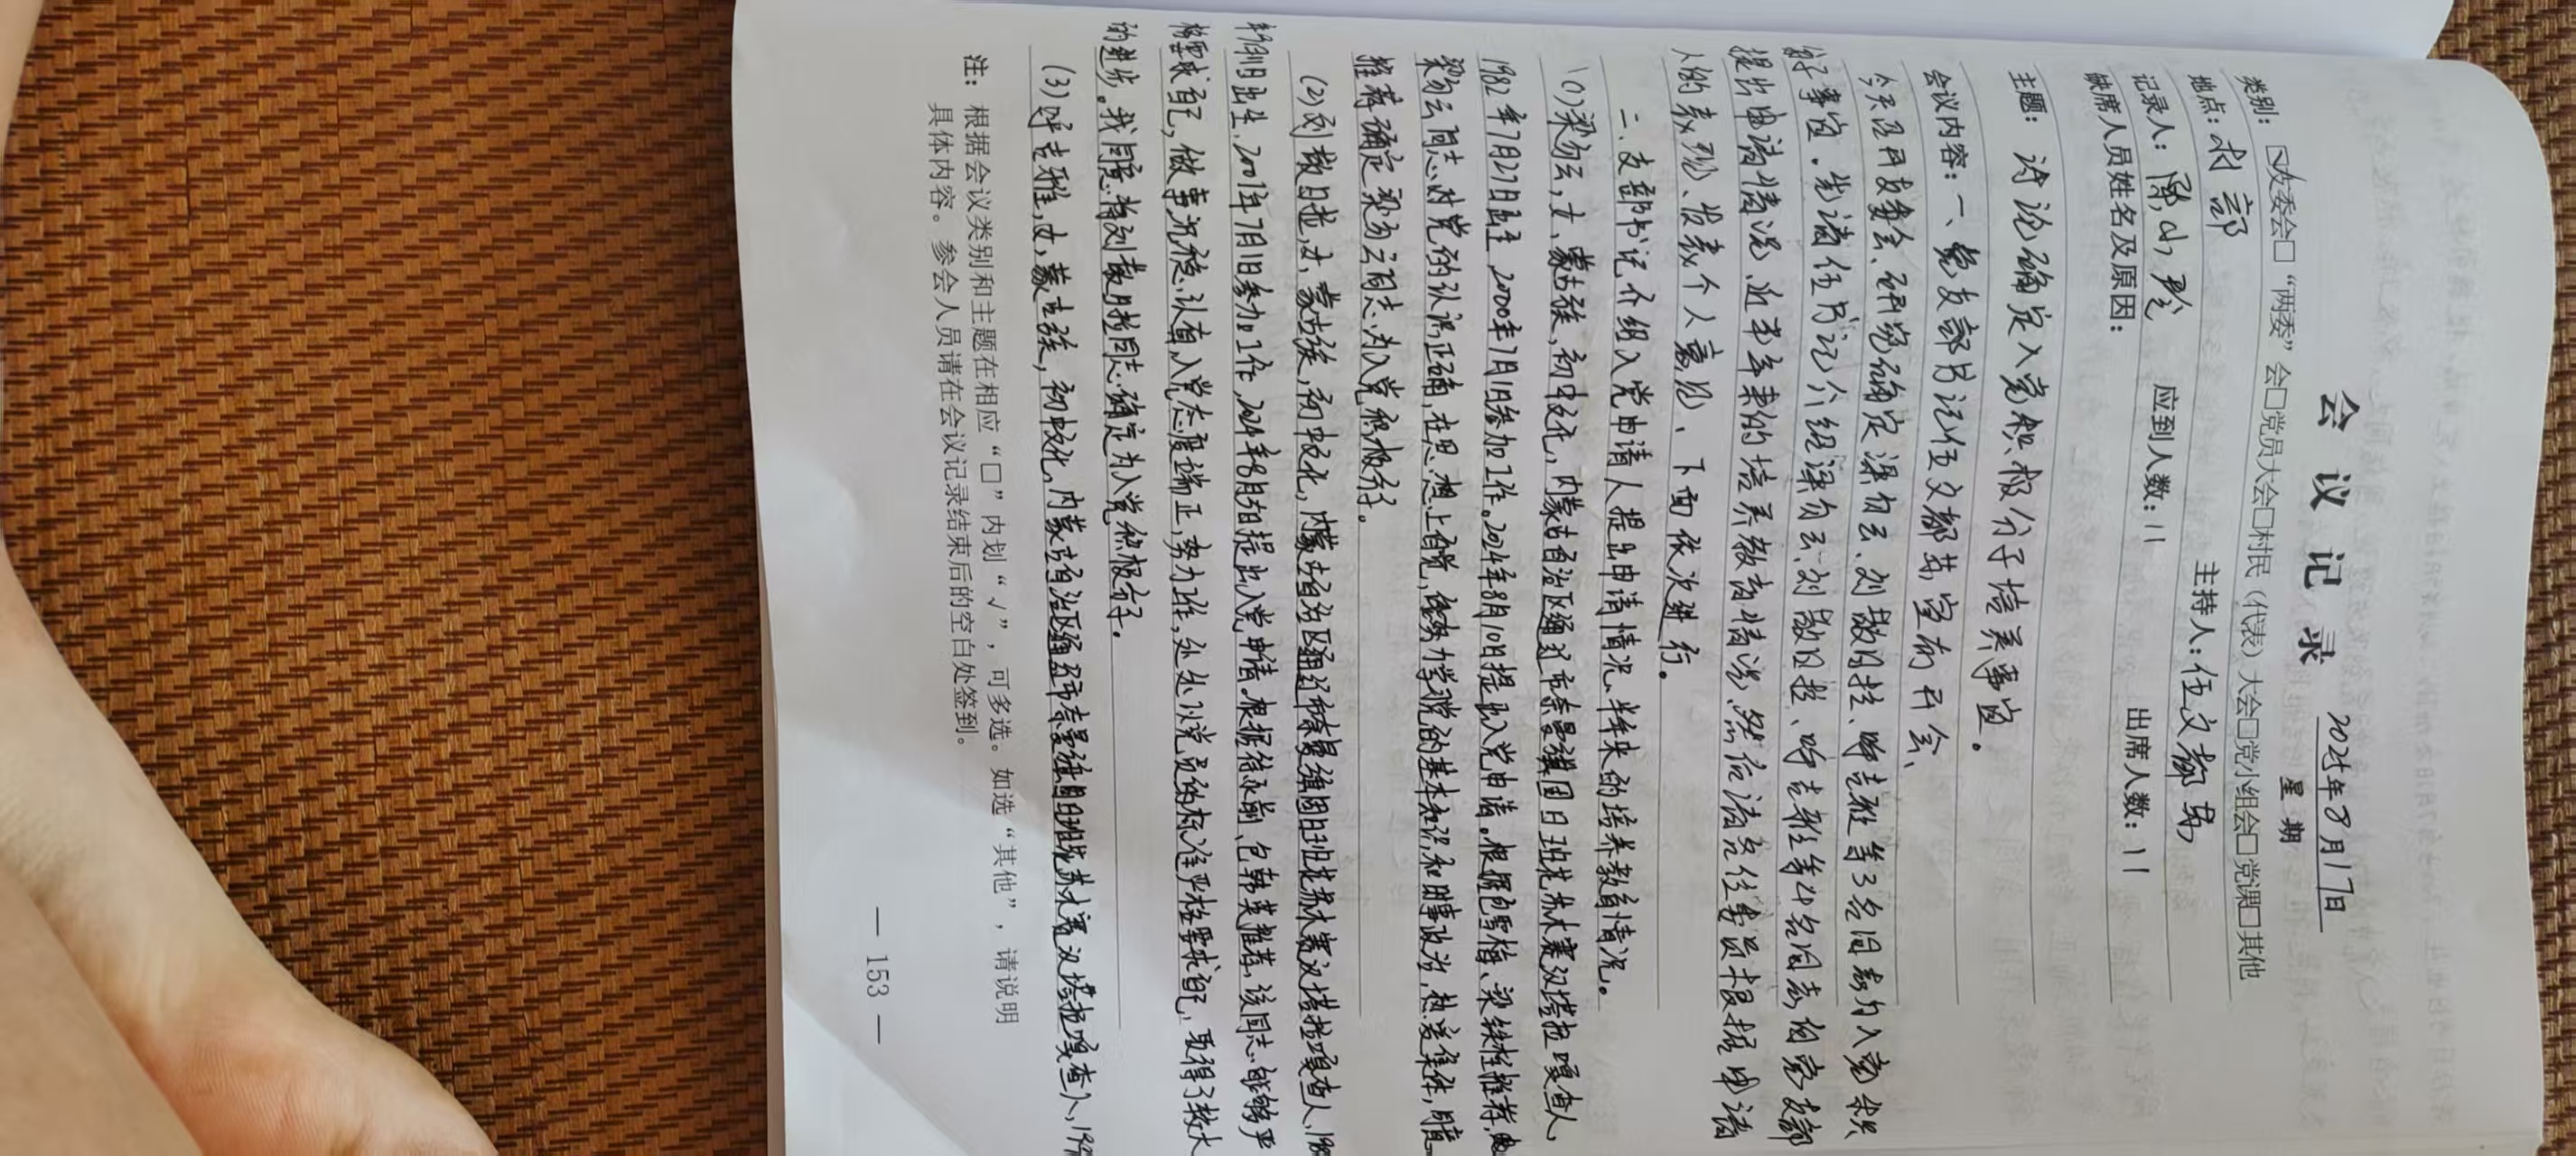 会议记录
2025年8月17日
星期
类别：☑支委会□“两委”会□党员大会□村民（代表）大会□党小组会□党课□其他
地点：村部 主持人：伍文都苏
记录人： 应到人数：11 出席人数：11
缺席人员姓名及原因：
主题：讨论确定入党积极分子培养事宜。
会议内容：一、党支部书记伍文都苏宣布开会、
今天召开支委会、研究确定梁勿云、刘敖日拉、呼吉雅等3名同志为入党积
极分子事宜.先请伍书记介绍梁勿云、刘敖日拉、呼吉雅等4名同志向党支部
提出申请情况、近半年来的培养教育情况、然后请各位委员根据申请
人的表现、发表个人意见、下面依次进行。
二、支部书记介绍入党申请人提出申请情况、半年来的培养教育情况。
(1)梁勿云,女、蒙古族,初中文化,内蒙古自治区通辽市奈曼旗固日班花苏木赛汉塔拉嘎查人、
1982年7月27日出生 2000年7月1日参加工作。2024年8月10日提出入党申请。根据包雪梅、梁铁柱推荐,
梁勿云同志对党的认识正确,在思想上自觉,能努力学习党的基本知识和时事政治,热爱集体,
推荐确定梁勿云同志为入党积极分子。
(2)刘敖日拉,女、蒙古族,初中文化,内蒙古自治区通辽市奈曼旗固日班花苏木赛汉塔拉嘎查人、
出生.2001年7月1日参加工作,2024年8月 提出入党申请。根据 包韩英推荐,该同志能够严
格要求自己,做事沉稳、认真,入党态度端正,努力工作,处处以党员的标准严格要求自己,取得了较大
的进步。我同意将刘敖日拉同志确定为入党积极分子。
(3)呼吉雅,女,蒙古族,初中文化,内蒙古自治区通辽市奈曼旗固日班花苏木赛汉塔拉嘎查人、
注：根据会议类别和主题在相应“□”内划“√”，可多选。如选“其他”，请说明
具体内容。参会人员请在会议记录结束后的空白处签到。
— 153 —